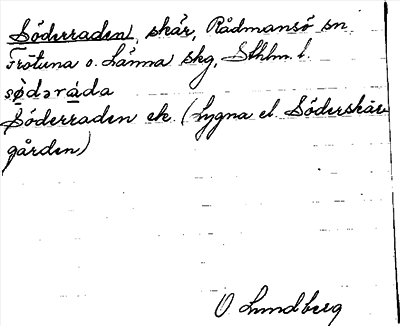 Söderraden, skär, Rådmansö sn
Frötuna o. Länna skg, Sthlm. l.
sø̀dəráda
Söderraden ek. (Lygna el. Söderskär
gården)
O Lundberg